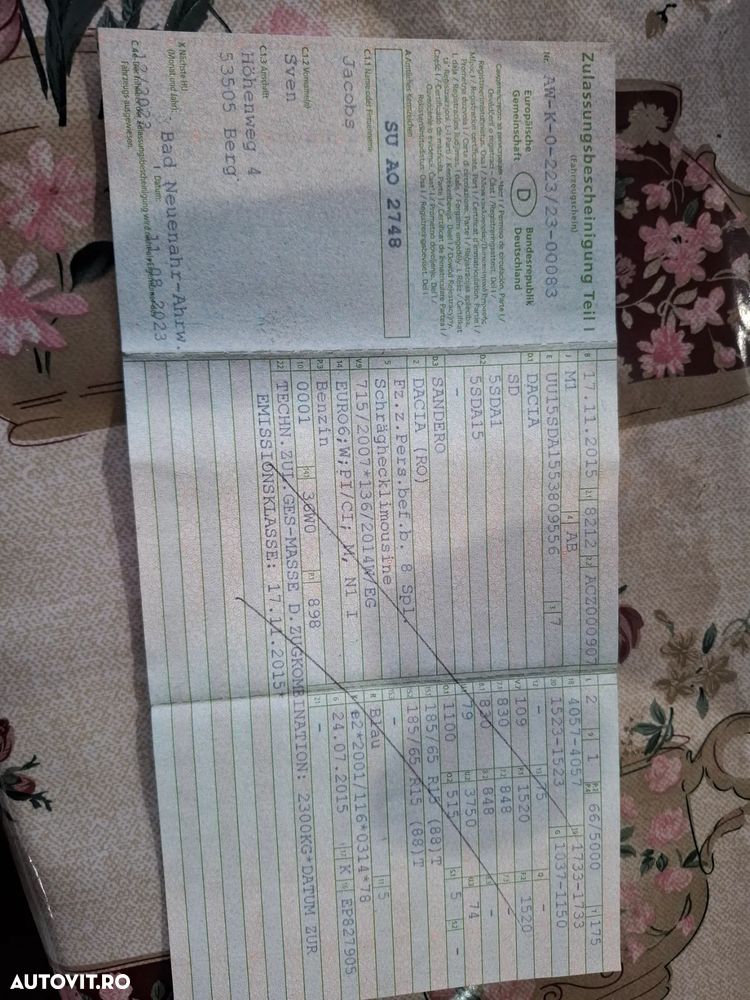 Zulassungsbescheinigung Teil I
(Fahrzeugschein)
Nr. AW-K-0-223/23-00083
Europäische Gemeinschaft
D
Bundesrepublik Deutschland
A Amtliches Kennzeichen
SU AO 2748
C.1.1 Name oder Firmenname
Jacobs
C.1.2 Vorname(n)
Sven
C.1.3 Anschrift
Höhenweg 4
53505 Berg
X Nächste HU
(Monat und Jahr)
Bad Neuenahr-Ahrw.
Datum:
11.08.2023
B 17.11.2015 8212 ACZ000907
J M1 4 AB
E UU15SDA1553809556 3 7
D.1 DACIA
SD
D.2 5SDA1
5SDA15
-
D.3 SANDERO
2 DACIA (RO)
5 Fz.z.Pers.bef.b. 8 Spl.
Schräghecklimousine
V.9 715/2007*136/2014W/EG
14 EURO6;W;PI/CI; M, N1 I
P.3 Benzin
10 0001 36W0 P.1 898
22 TECHN.ZUL.GES-MASSE D.ZUGKOMBINATION: 2300KG*DATUM ZUR
EMISSIONSKLASSE: 17.11.2015*
L 2 9 1 66/5000 T 175
18 4057-4057 19 1733-1733
20 1523-1523 G 1037-1150
12 - 13 75 Q -
V.7 109 F.1 1520 F.2 1520
7.1 830 7.2 848 7.3 -
8.1 830 8.2 848 8.3 -
U.1 79 U.2 3750 U.3 74
O.1 1100 O.2 515 S.1 5 S.2 -
15.1 185/65 R15 (88)T
15.2 185/65 R15 (88)T
15.3 -
R Blau 11 5
K e2*2001/116*0314*78
6 24.07.2015 17 K 16 EP827905
21 -
AUTOVIT.RO